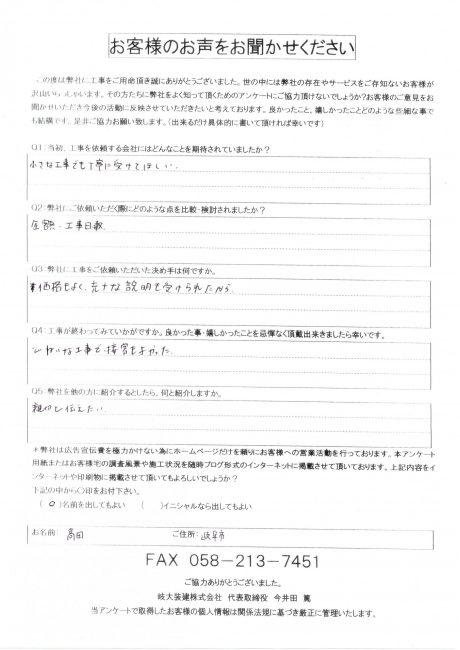 お客様のお声をお聞かせください
この度は弊社に工事をご用命頂き誠にありがとうございました。世の中には弊社の存在やサービスをご存知ないお客様が
沢山いらっしゃいます。その方たちに弊社をよく知って頂くためのアンケートにご協力頂けないでしょうか?お客様のご意見をお
聞かせいただき今後の活動に反映させていただきたいと考えております。良かったこと、嬉しかったことどのような些細な事で
も結構です、是非ご協力お願い致します。(出来るだけ具体的に書いて頂ければ幸いです)
Q1:当初、工事を依頼する会社にはどんなことを期待されていましたか?
小さな工事でも丁寧に受けてほしい.
Q2:弊社にご依頼いただく際にどのような点を比較・検討されましたか?
金額・工事日数
Q3:弊社に工事をご依頼いただいた決め手は何ですか。
価格もよく、充分な説明を受けられたから
Q4:工事が終わってみていかがですか。良かった事・嬉しかったことを忌憚なく頂戴出来きましたら幸いです。
ていねいな工事で接客もよかった.
Q5:弊社を他の方に紹介するとしたら、何と紹介しますか。
親切と伝えたい
*弊社は広告宣伝費を極力かけない為にホームページだけを頼りにお客様への営業活動を行っております。本アンケート
用紙またはお客様宅の調査風景や施工状況を随時ブログ形式のインターネットに掲載させて頂いております。上記内容をイ
ンターネットや印刷物に掲載させて頂いてもよろしいでしょうか?
下記の中から〇印をお付下さい。
( O )名前を出してもよい ( )イニシャルなら出してもよい
お名前: 高田 ご住所: 岐阜市
FAX 058-213-7451
ご協力ありがとうございました。
岐大装建株式会社 代表取締役 今井田 篤
当アンケートで取得したお客様の個人情報は関係法規に基づき厳正に管理いたします。